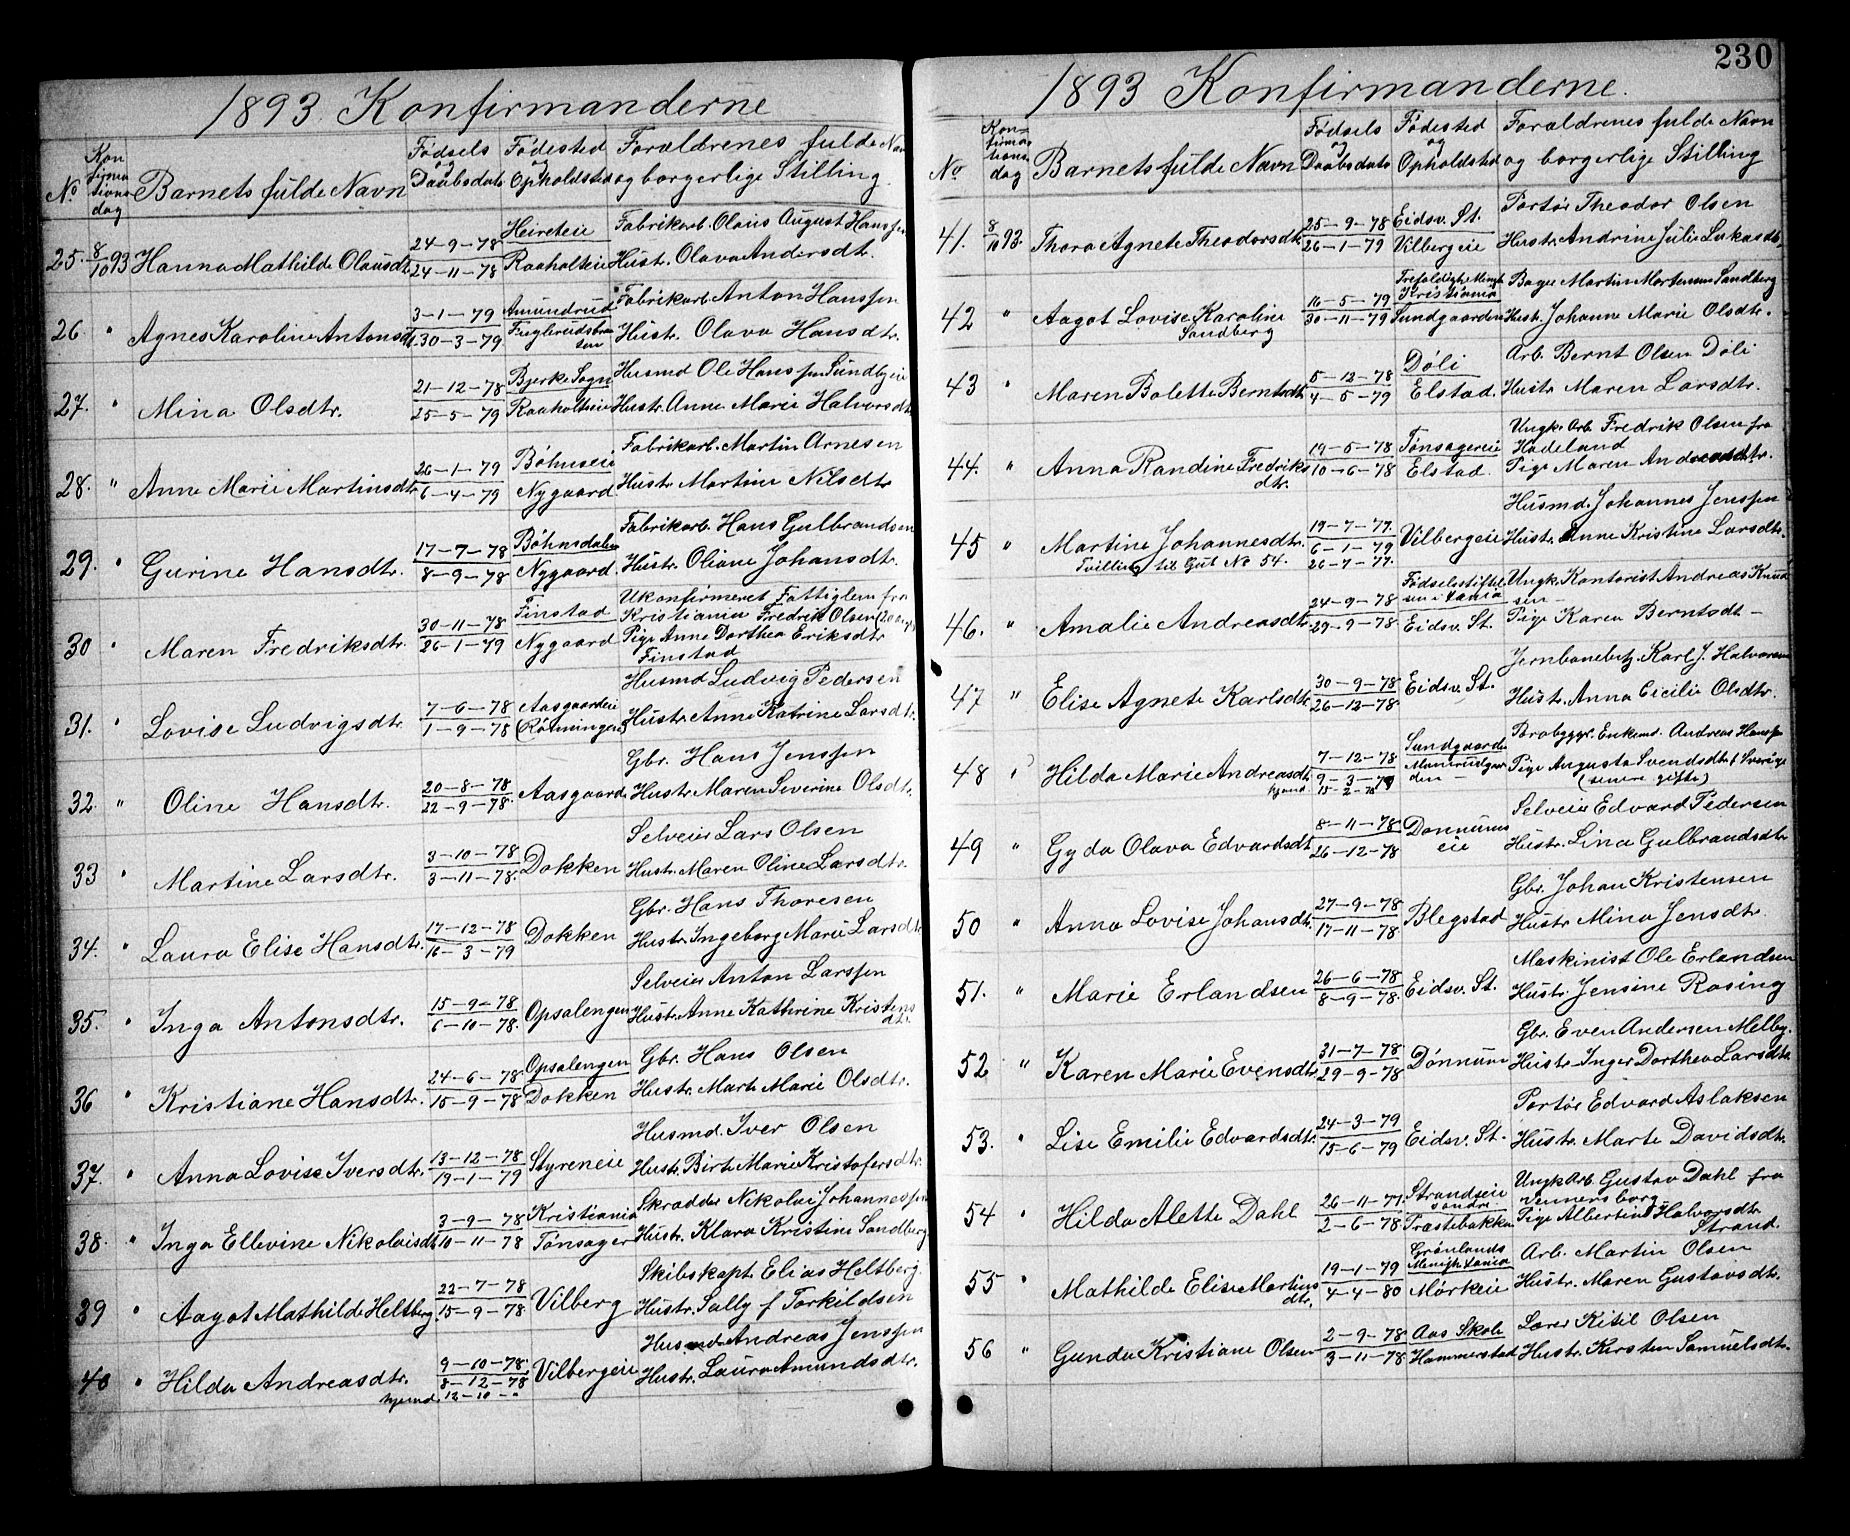 1893. Konfirmanderne
No Kon firma tions dag Barnets fulde Navn Fødsels og Daabsdato Fødested og Opholdsted Forældrenes fulde Navn og borgerlige Stilling.
25. 8/10 93 Hanna Mathilde Olausdtr. 24-9-78 24-11-78 Heireteie Raaholteie Fabrikarb. Olaus August Hanssen
Hustr. Olava Andersdtr.
26 " Agnes Karoline Antonsdtr. 3-1-79 30-3-79 Amundrud Fabrikarb. Anton Hanssen
Hustr. Olava Hansdtr.
27. " Mina Olsdtr. 21-12-78 25-5-79 Bjerke Sogn Raaholteie Husmd Ole Hanssen Sundbyeie
Hustr. Anne Marie Halvorsdtr.
28. " Anne Marie Martinsdtr. 26-1-79 6-4-79 Bøhnseie Nygaard Fabrikarb. Martin Arnesen
Hustr. Martine Nilsdtr
29. " Gurine Hansdtr. 17-7-78 8-9-78 Bøhnsdalen Nygaard. Fabrikarb. Hans Gulbrandsen
Hustr. Oliane Johansdtr.
30 " Maren Fredriksdtr. 30-11-78 26-1-79 Finstad Nygaard Ukonfirmeret Fattiglem fra
Kristiania Fredrik Olsen
Pige Anne Dorthea Eriksdtr
Finstad
31. " Lovise Ludvigsdtr. 7-6-78 1-9-78 Aasgaardeie (Rømmingen) Husmd Ludvig Pedersen
Hustr. Anne Katrine Larsdtr.
32. " Oline Hansdtr. 20-8-78 22-9-78. Aasgaard Gbr. Hans Jenssen
Hustr. Maren Severine Olsdtr.
33 " Martine Larsdtr. 3-10-78 3-11-78. Dokken Selveier Lars Olsen
Hustr. Maren Oline Larsdtr.
34. " Laura Elise Hansdtr. 17-12-78 16-3-79 Dokken Gbr. Hans Thoresen
Hustr. Ingeborg Marie Larsdtr
35. " Inga Antonsdtr. 15-9-78 6-10-78. Opsalengen Selveier Anton Larssen
Hustr. Anne Kathrine Kristens
dtr.
36 " Kristiane Hansdtr. 24-6-78 15-9-78 Opsalengen Dokken Gbr. Hans Olsen
Hustr. Marte Marie Olsdtr.
37. " Anna Lovise Iversdtr. 13-12-78 19-1-79 Styreneie Husmd. Iver Olsen
Hustr. Birte Marie Kristofersdtr.
38. " Inga Ellevine Nikolaisdtr 3-9-78 10-11-78 Kristiania Tønsager Skradder Nikolai Johannessen
Hustr. Klara Kristine Sandberg
39 " Aagot Mathilde Heltberg. 22-7-78 15-9-78 Vilberg Skibskapt. Elias Heltberg.
Hustr. Sally f Torkildsen
40 " Hilda Andreasdtr. 9-10-78. 8-12-78 Vilbergeie Husmd Andreas Jenssen
hjemd. 12-10-" Hustr. Laura Amundsdtr.
230
1893 Konfirmanderne.
No Kon= firma= tions= dag Barnets fulde Navn Fødsels og Daabsdato Fødested og Opholdsted Forældrenes fulde Navn og borgerlige Stilling
41. 8/10 93. Thora Agnete Theodorsdtr. 25-9-78 26-1-79 Eidsv. St. Vilbergeie Portør Theodor Olsen
Hustr. Andrine Julie Lukasdtr.
42 " Aagot Lovise Karoline Sandberg 16-5-79 30-11-79 Trefoldigh. Kristiania Sundgaarden Bager Martin Mortensen Sandberg
Hustr. Johanne Marie Olsdtr.
43 " Maren Bolette Berntsdtr. 5-12-78 4-5-79 Døli Elstad. Arb. Bernt Olsen Døli
Hustr. Maren Larsdtr.
44. " Anna Randine Fredriks dtr. 19-5-78 10-6-78 Tønsagereie Elstad. Ungk. Arb. Fredrik Olsen fra
Hadeland
Pige Maren
45 " Martine Johannesdtr. 19-7-77. 6-1-79 26-7-77. Vilbergeie Husmd. Johannes Jenssen
Tvilling til Gut No 54. Hustr. Anne Kristine Larsdtr.
46. " Amalie Andreasdtr. 24-9-78 29-9-78 Fødselsstiftelsen i Xania Eidsv. St. Ungk. Kontorist Andreas Knud
sen-
Pige Karen Berntsdtr-
47 " Elise Agnete Karlsdtr. 30-9-78 26-12-78 Eidsv. St. Jernbanebetj. Karl J. Halvorsen
Hustr. Anna Cicilie Olsdtr.
48 " Hilda Marie Andreasdtr. 7-12-78 9-3-79 Sundgaarden Brobyggr. Enkemd. Andreas Hanssen
hjemd. 15-2- Pige Augusta Svendsdtr f Sverige
(senere gifte)
49 " Gyda Olava Edvardsdtr 8-11-78 26-12-78 Dønnumseie Selveier Edvard Pedersen
Hustr. Lina Gulbrandsdtr.
50 " Anna Lovise Johansdtr. 27-9-78 17-11-78 Blegstad Gbr. Johan Kristensen
Hustr Mina Jensdtr.
51. " Marie Erlandsen 26-6-78 8-9-78. Eidsv. St. Maskinist Ole Erlandsen
Hustr. Jensine Rosing
52 " Karen Marie Evensdtr. 31-7-78 29-9-78 Dønnum Gbr. Even Andersen Melby.
Hustr. Inger Dorthea Larsdtr.
53. " Lise Emilie Edvardsdtr. 24-3-79 15-6-79 Eidsv. St. Portør Edvard Aslaksen
Hustr. Marte Davidsdtr.
54 " Hilda Alette Dahl 26-11-77. 2-6-78 Strandseie søndre Træstebakken Ungk. Arb. Gustav Dahl fra
Vennersborg
Pige Albertine Halvorsdtr.
Strand.
55 " Mathilde Elise Martins dtr. 19-1-79 4-4-80 Grønlands Menigh. Xania Mørkeie Arb. Martin Olsen
Hustr. Maren Gustavsdtr.
56 " Gunda Kristiane Olsen 2-9-78 3-11-78 Aas Skole Hammerstad Lærer Kitil Olsen
Hustr. Kirsten Samuelsdtr.